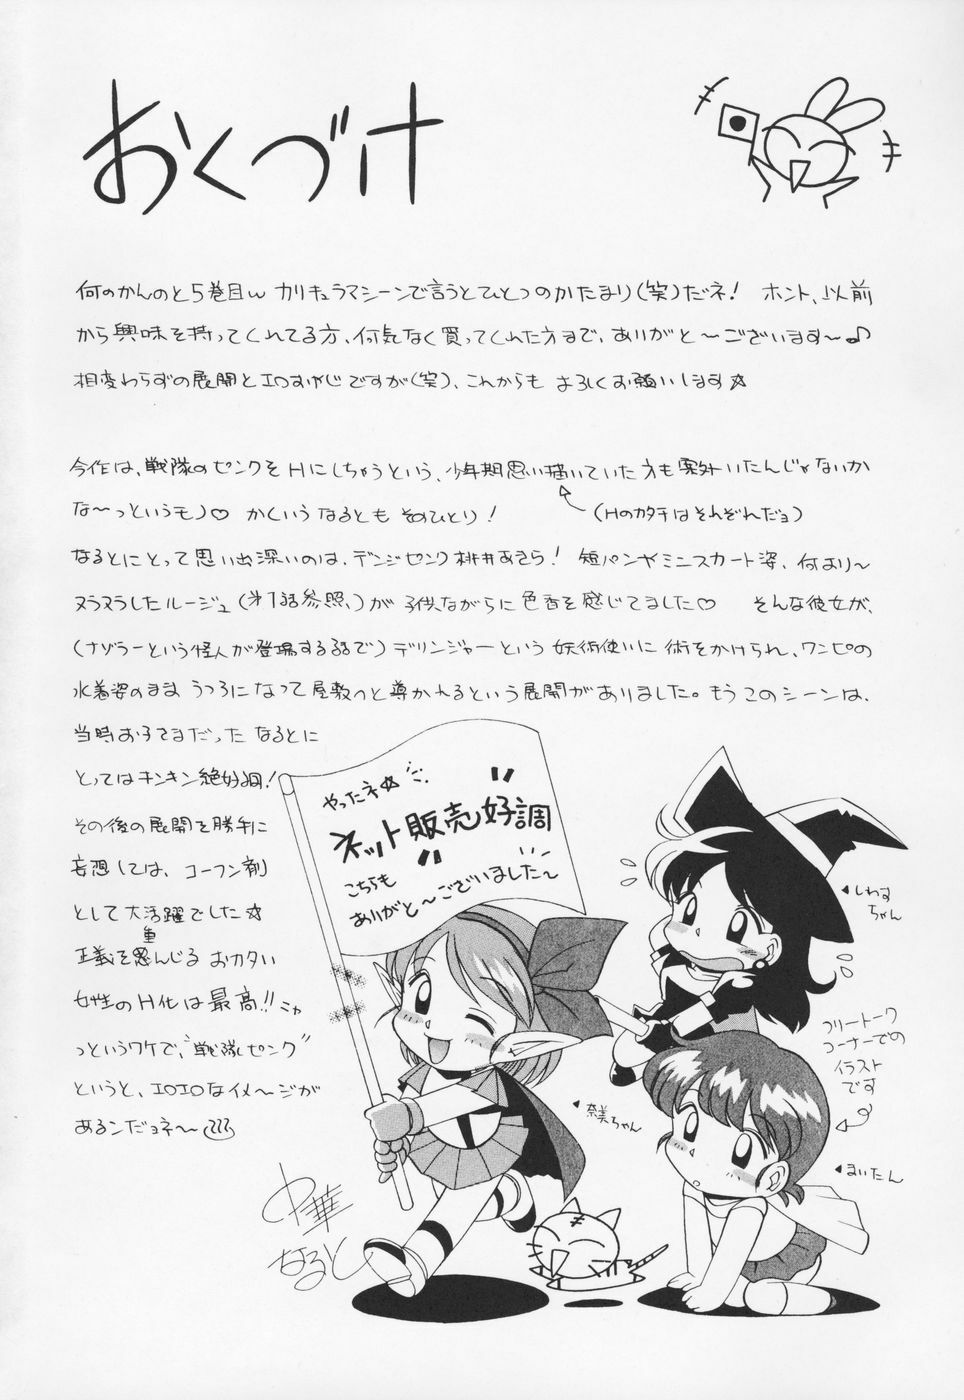 おくづけ
何のかんのと5巻目w カリキュラマシーンで言うとひとつのかたまり(笑)だネ! ホント、以前
から興味を持ってくれてる方、何気なく買ってくれた方まで、ありがと〜ございます〜♪
相変わらずの展開とエロおやじですが(笑)、これからも よろしくお願いします☆
今作は、戦隊のピンクをHにしちゃうという、少年期思い描いていた方も案外いたんじゃないか
な〜っというモノ♡ かくいうなるとも そのひとり!
(Hのカタチはそれぞれだョ)
なるとにとって思い出深いのは、デンジピンク桃井あきら! 短パンやミニスカート姿、何より〜
ヌラヌラしたルージュ(第1話参照、)が 子供ながらに色香を感じてました♡ そんな彼女が、
(ナゾラーという怪人が登場する話で)デリンジャーという妖術使いに術をかけられ、ワンピの
水着姿のまま うつろになって屋敷へと導かれるという展開がありました。もうこのシーンは、
当時お子さまだった なるとに
とってはキンキン絶好調!
その後の展開を勝手に
妄想しては、コーフン剤
として大活躍でした☆
正義を重んじる おカタい
女性のH化は最高!!ニャ
っというワケで、"戦隊ピンク"
というと、エロエロなイメ〜ジが
あるンだョネ〜
やったネ☆
"ネット販売好調"
こちらも
ありがと〜ございました〜
しわす
ちゃん
フリートーク
コーナーでの
イラスト
です
奈美ちゃん
まいたん
中華
なると